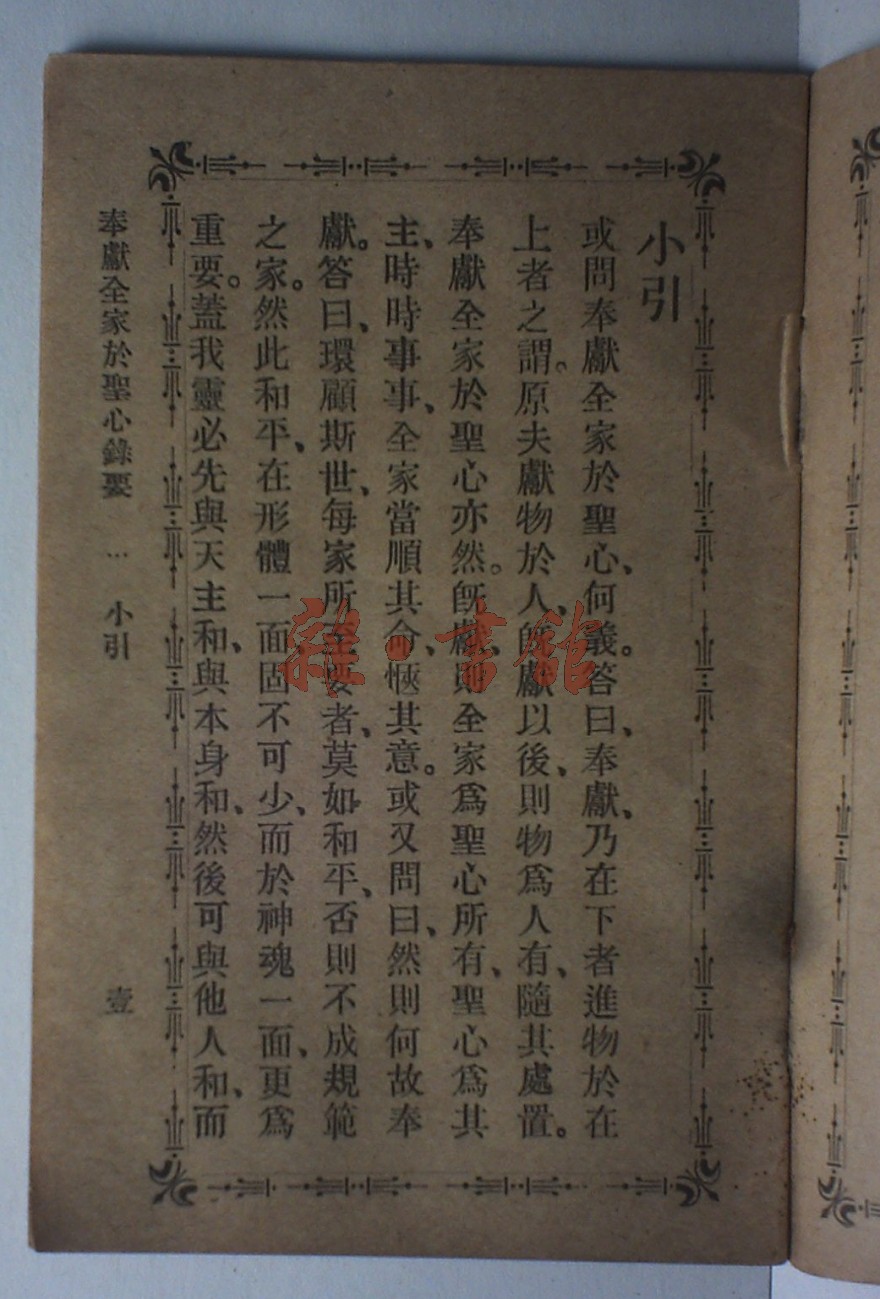 小引
或問奉獻全家於聖心、何義。答曰、奉獻、乃在下者進物於在
上者之謂。原夫獻物於人、旣獻以後、則物爲人有、隨其處置。
奉獻全家於聖心亦然。旣獻、則全家爲聖心所有、聖心爲其
主、時時事事、全家當順其命、愜其意。或又問曰、然則何故奉
獻。答曰、環顧斯世、每家所至要者、莫如和平、否則不成規範
之家。然此和平、在形體一面、固不可少、而於神魂一面、更爲
重要。蓋我靈必先與天主和、與本身和、然後可與他人和、而
奉獻全家於聖心錄要 … 小引 壹
雜·書館